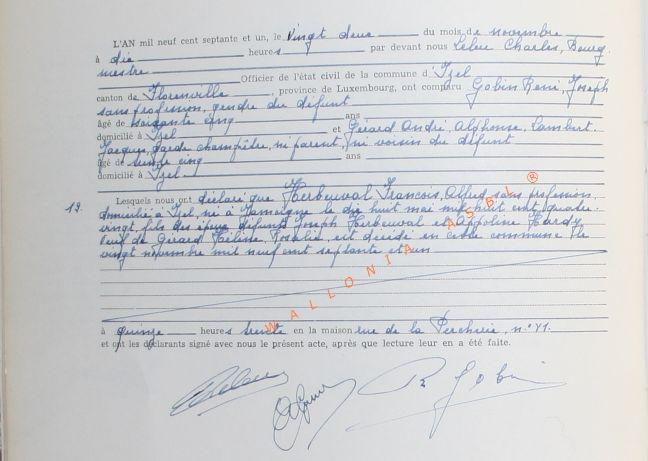 L'AN mil neuf cent septante et un, le vingt deux du mois de novembre
à dix heures par devant nous Leleu Charles, Bourg-
mestre Officier de l'état civil de la commune d' Izel
canton de Florenville, province de Luxembourg, ont comparu Gobin René, Joseph
sans profession, gendre du défunt
âgé de soixante cinq ans
domicilié à Izel et Gérard André, Alphonse, Lambert.
Jacques, garde champêtre, ni parent, ni voisin du défunt
âgé de cinq ans
domicilié à Izel
19. Lesquels nous ont déclaré que Herbeuval François, Alfred sans profession,
domicilié à Izel, né à Jamoigne le dix huit mai mil huit cent quatre-
vingt, fils des époux défunts Joseph Herbeuval et Appoline Hardy
veuf de Gérard Hélène, Rosalie, est décédé en cette commune le
vingt novembre mil neuf cent septante et un
à quinze heures trente en la maison rue de la n° 41.
et ont les déclarants signé avec nous le présent acte, après que lecture leur en a été faite.
WALLONIA ASBL ®
R Gobin